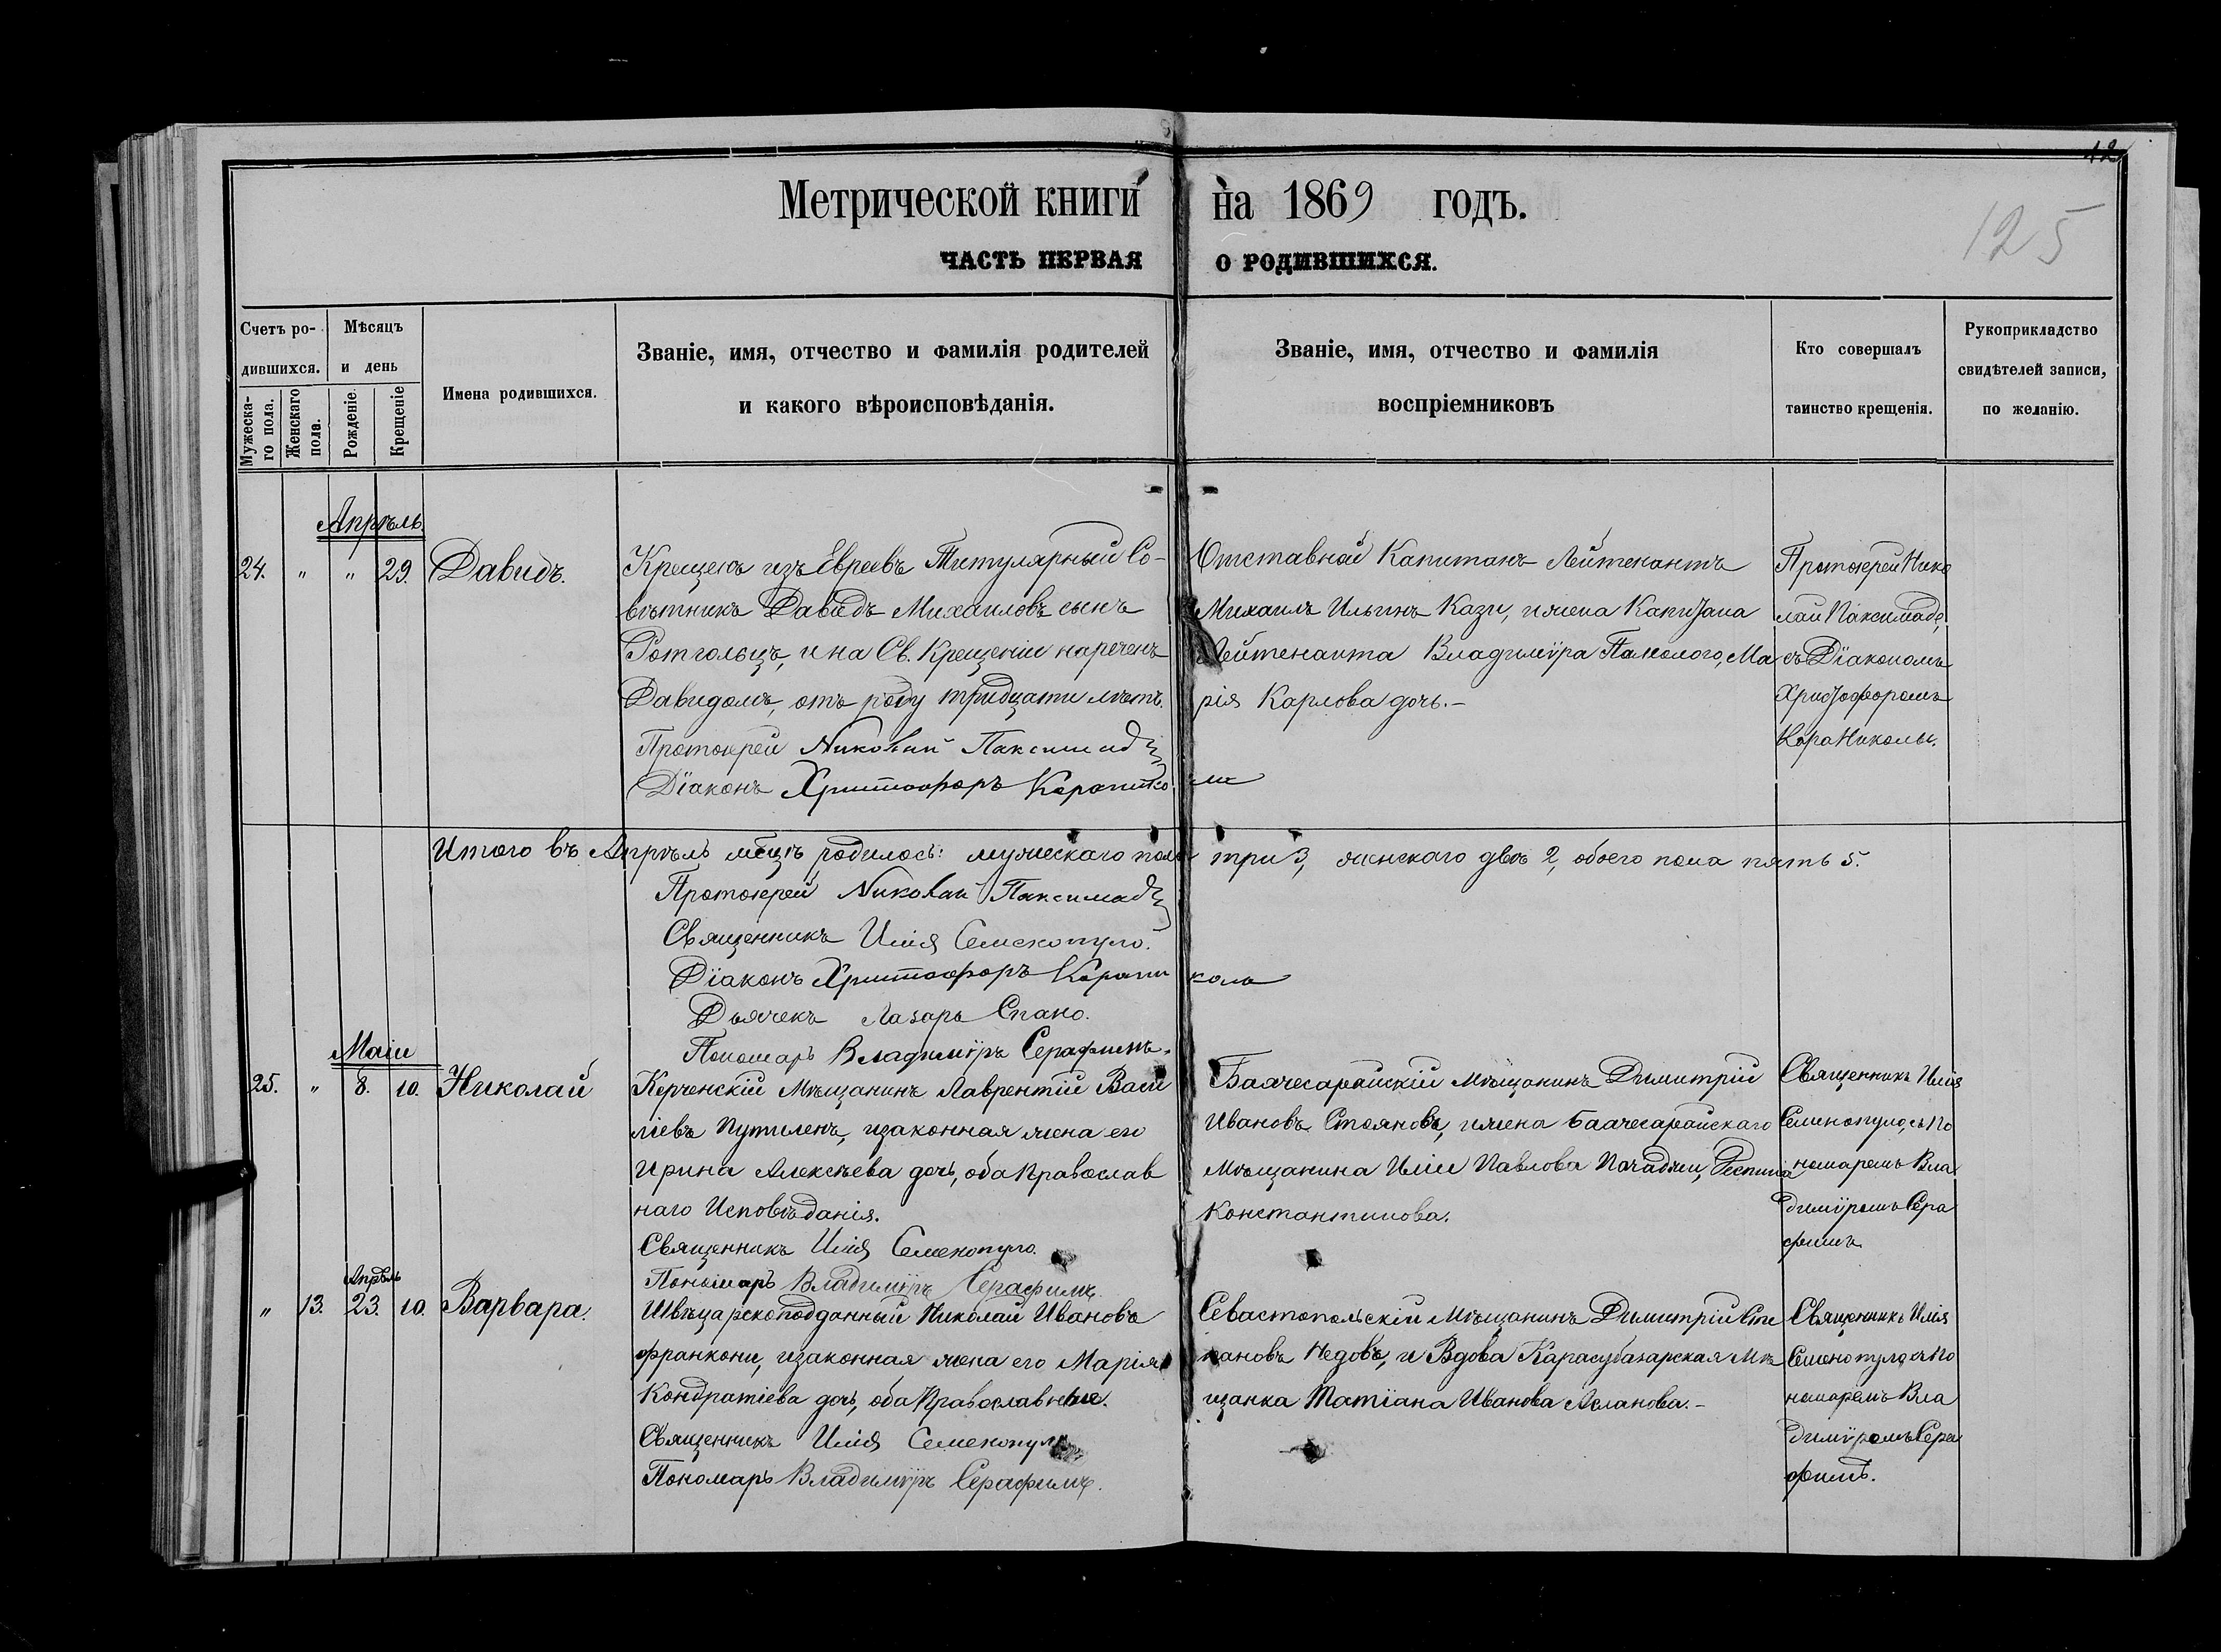 12
Метрической книги на 1869 годъ.
125
ЧАСТЬ ПЕРВАЯ О РОДИВШИХСЯ.
Счетъ ро-
дившихся.
Мужеска-
го пола.
Женскаго
пола.
Мѣсяцъ
и день
Рожденіе.
Крещеніе
Имена родившихся.
Званіе, имя, отчество и фамилія родителей
и какого вѣроисповѣданія.
Званіе, имя, отчество и фамилія
воспріемниковъ
Кто совершалъ
таинство крещенія.
Рукоприкладство
свидѣтелей записи,
по желанію.
Апрѣль.
24. " " 29. Давидъ.
Крещенъ изъ Евреевъ Титулярный Со-
вѣтникъ Давидъ Михаиловъ сынъ
Ротгольцъ, и на Св. Крещеніи нареченъ
Давидомъ, отъ роду тридцати лѣтъ.
Протоіерей Николай Паксимади
Діаконъ Христофоръ Караниколи
Отставной Капитанъ Лейтенантъ
Михаилъ Ильинъ Кази, и жена Капитана
Лейтенанта Владиміра Палеолого, Ма
рія Карлова дочь.-
Протоіерей Нико
лай Паксимаде,
съ Діакономъ
Христофоромъ
КараНиколы.
Итого въ Апрѣлѣ мѣцѣ родилось: мужескаго пола три 3, женскаго двѣ 2, обоего пола пять 5.
Протоіерей Николай Паксимади
Священникъ Илія Семенопуло.
Діаконъ Христофоръ Караникола
Дьячекъ Лазарь Спано.
Пономарь Владиміръ Серафимъ.
Маіи
25. " 8. 10. Николай
Керченскій Мѣщанинъ Лаврентій Васи
ліевъ Путиленъ, и законная жена его
Ирина Алексѣева дочь, оба Православ
наго Исповѣданія.
Священникъ Илія Семенопуло.
Пономарь Владиміръ Серафимъ.
Баачесарайскій Мѣщанинъ Димитрій
Ивановъ Стояновъ, и жена Баачесарайскаго
Мѣщанина Иліи Павлова Пачаджи, Деспина
Константинова.
Священникъ Илія
Семенопуло, съ По
номаремъ Вла
диміромъ Сера
фимъ.
Апрѣль
" 13. 23. 10. Варвара.
Швѣцарскоподданный Николай Ивановъ
Франкони, и законная жена его Марія
Кондратіева дочь, оба Православные.
Священникъ Илія Семенопуло
Пономарь Владиміръ Серафимъ.
Севастопольскій Мѣщанинъ Димитрій Сте
пановъ Недовъ, и Вдова Карасубазарская Мѣ
щанка Татіана Иванова Асланова.-
Священникъ Илія
Семенопуло, съ По
номаремъ Вла
диміромъ Сера
фимъ.